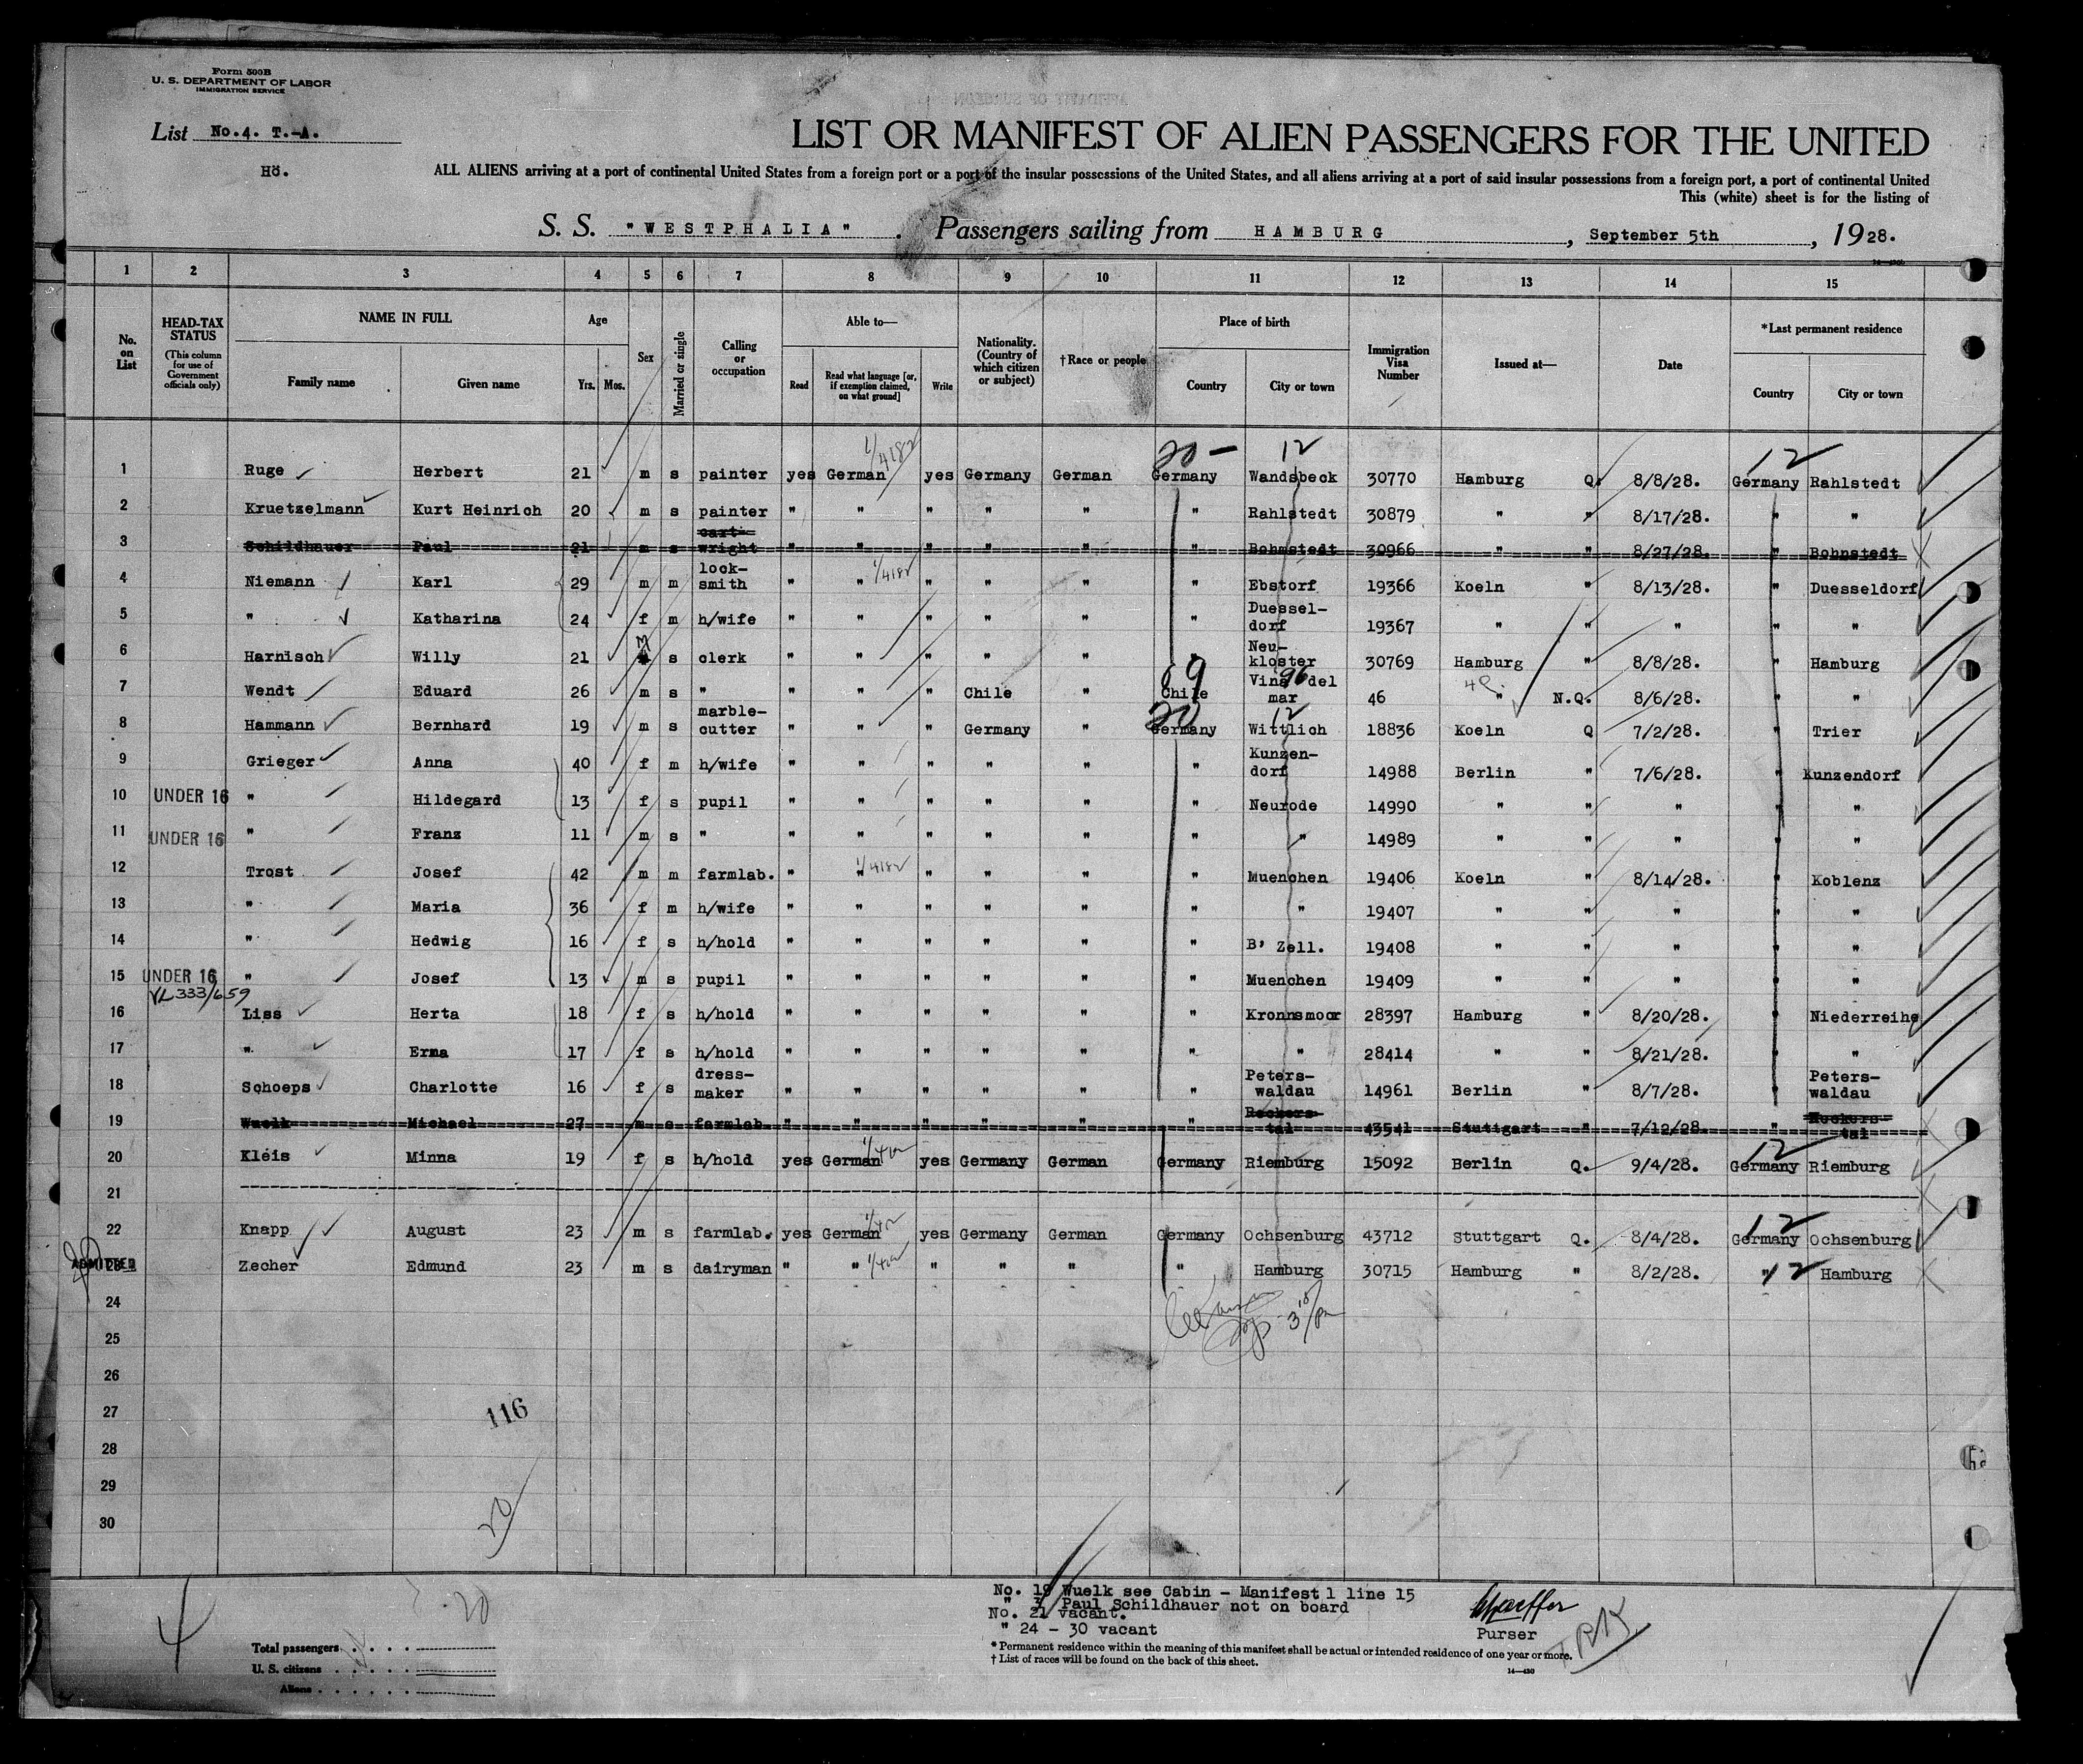 Form 500B
U. S. DEPARTMENT OF LABOR
IMMIGRATION SERVICE
List No.4. T.-A.
Hö.
LIST OR MANIFEST OF ALIEN PASSENGERS FOR THE UNITED
ALL ALIENS arriving at a port of continental United States from a foreign port or a port of the insular possessions of the United States, and all aliens arriving at a port of said insular possessions from a foreign port, a port of continental United
This (white) sheet is for the listing of
S. S. "WESTPHALIA". Passengers sailing from HAMBURG, September 5th, 1928.
1 2 3 4 5 6 7 8 9 10 11 12 13 14 15
No. on List
HEAD-TAX STATUS (This column for use of Government officials only)
NAME IN FULL
Family name Given name
Age
Yrs. Mos.
Sex
Married or single
Calling or occupation
Able to—
Read Read what language [or, if exemption claimed, on what ground] Write
Nationality. (Country of which citizen or subject)
†Race or people
Place of birth
Country City or town
Immigration Visa Number
Issued at—
Date
*Last permanent residence
Country City or town
20 - 12 12
1 Ruge Herbert 21 m s painter yes German yes Germany German Germany Wandsbeck 30770 Hamburg Q. 8/8/28. Germany Rahlstedt
2 Kruetzelmann Kurt Heinrich 20 m s painter " " " " " " Rahlstedt 30879 " " 8/17/28. " "
3 Schildhauer Paul 21 m s cart-wright " " " " " " Bohmstedt 30966 " " 8/27/28. " Bohnstedt
4 Niemann Karl 29 m m lock-smith " " " " " " Ebstorf 19366 Koeln " 8/13/28. " Duesseldorf
5 " Katharina 24 f m h/wife " " " " " " Duessel-dorf 19367 " " " " "
6 Harnisch Willy 21 M s clerk " " " " " " Neu-kloster 30769 Hamburg " 8/8/28. " Hamburg
7 Wendt Eduard 26 m s " " " " Chile " Chile Vina del mar 46 " N.Q. 8/6/28. " "
8 Hammann Bernhard 19 m s marble-cutter " " " Germany " Germany Wittlich 18836 Koeln Q 7/2/28. " Trier
9 Grieger Anna 40 f m h/wife " " " " " " Kunzen-dorf 14988 Berlin " 7/6/28. " Kunzendorf
10 UNDER 16 " Hildegard 13 f s pupil " " " " " " Neurode 14990 " " " " "
11 UNDER 16 " Franz 11 m s " " " " " " " " 14989 " " " " "
12 Trost Josef 42 m m farmlab. " " " " " " Muenchen 19406 Koeln " 8/14/28. " Koblenz
13 " Maria 36 f m h/wife " " " " " " " 19407 " " " " "
14 " Hedwig 16 f s h/hold " " " " " " B' Zell. 19408 " " " " "
15 UNDER 16 " Josef 13 m s pupil " " " " " " Muenchen 19409 " " " " "
VL 333/659
16 Liss Herta 18 f s h/hold " " " " " " Kronnsmoor 28397 Hamburg " 8/20/28. " Niederreihe
17 " Erma 17 f s h/hold " " " " " " " 28414 " " 8/21/28. " "
18 Schoeps Charlotte 16 f s dress-maker " " " " " " Peters-waldau 14961 Berlin " 8/7/28. " Peters-waldau
19 Wuelk Michael 27 m s farmlab. " " " " " " 43541 Stuttgart " 7/12/28. "
20 Kleis Minna 19 f s h/hold yes German yes Germany German Germany Riemburg 15092 Berlin Q. 9/4/28. Germany Riemburg
21
22 Knapp August 23 m s farmlab. yes German yes Germany German Germany Ochsenburg 43712 Stuttgart Q. 8/4/28. Germany Ochsenburg
ADMITTED
23 Zecher Edmund 23 m s dairyman " " " " " " Hamburg 30715 Hamburg " 8/2/28. " Hamburg
24
25
26
27
28
29
30
116
20
4
20
No. 19 Wuelk see Cabin - Manifest 1 line 15
" 3 Paul Schildhauer not on board
No. 21 vacant.
" 24 - 30 vacant
Purser
Total passengers
U. S. citizens
Aliens
* Permanent residence within the meaning of this manifest shall be actual or intended residence of one year or more.
† List of races will be found on the back of this sheet.
14—430